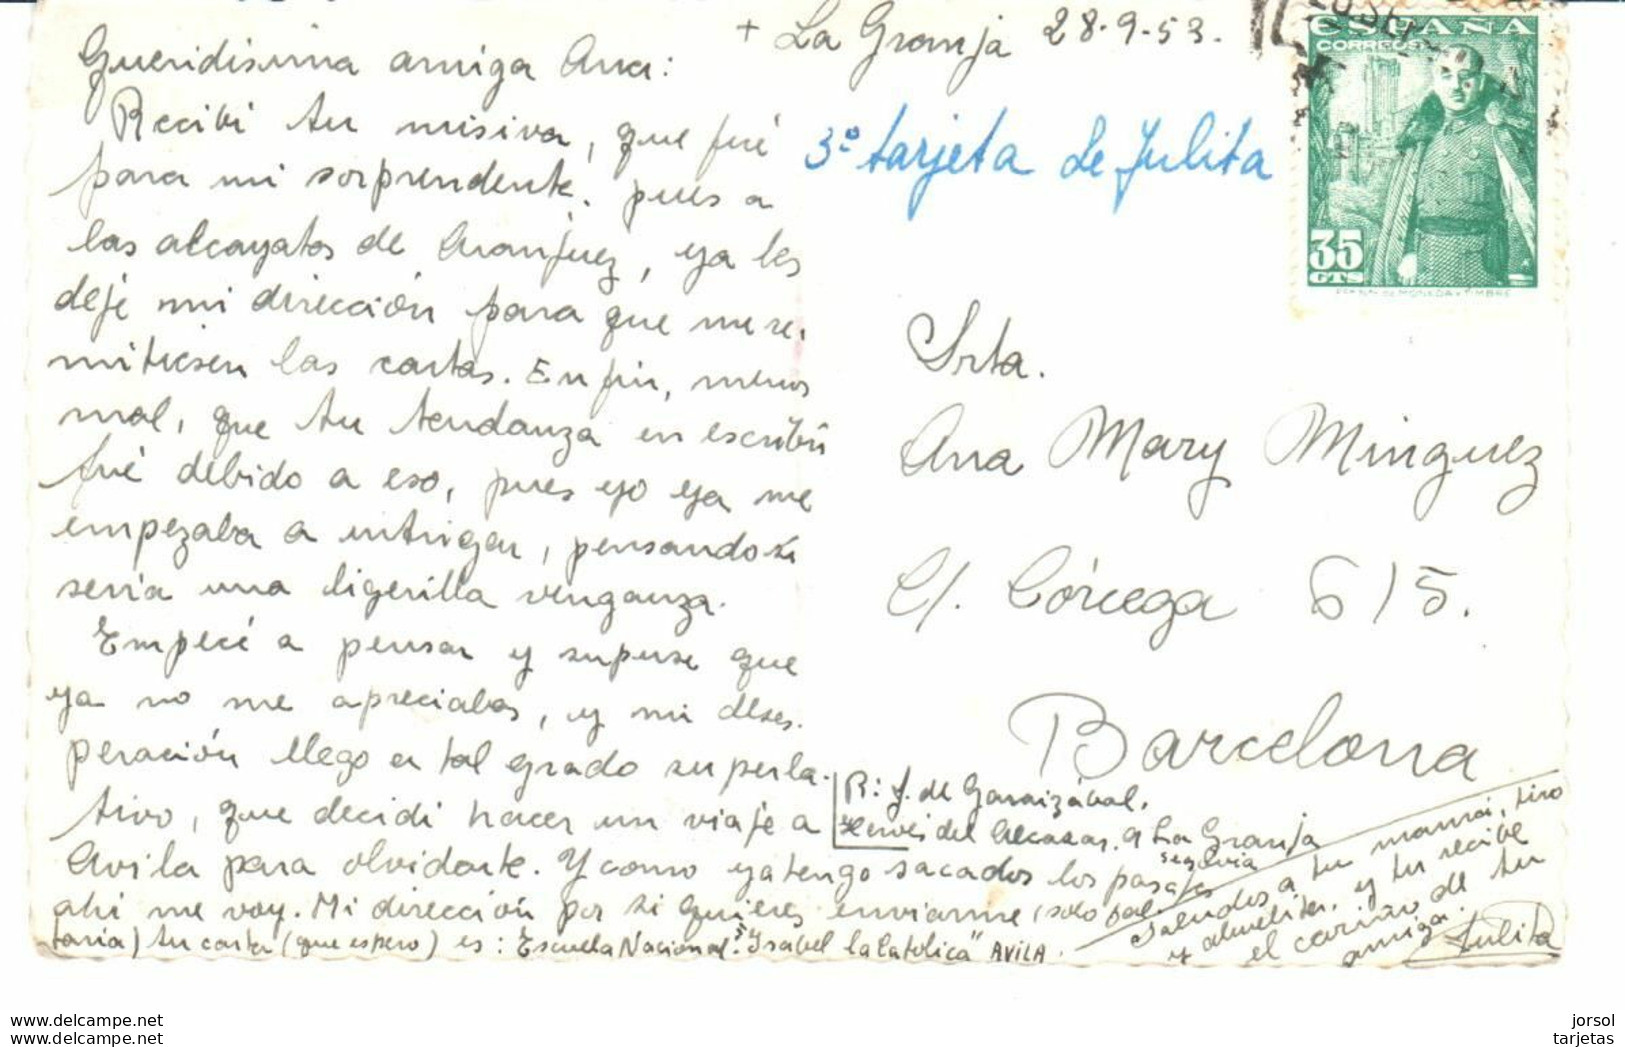 + La Granja 28-9-53.
Queridisima amiga Ana:
Recibí tu misiva, que fué
para mi sorprendente. pues a
las alcayatas de Aranjuez, ya les
dejé mi dirección para que me re-
mitiesen las cartas. En fin, menos
mal, que tu tardanza en escribir
fué debido a eso, pues yo ya me
empezaba a intrigar, pensando si
sería una ligerilla venganza.
Empecé a pensar y supuse que
ya no me apreciabas, y mi deses-
peración llego a tal grado superla-
tivo, que decidi hacer un viaje a
Avila para olvidarte. Y como ya tengo sacados los pasajes
ahi me voy. Mi dirección por si quieres enviarme (solo fal-
taria) tu carta (que espero) es: Escuela Nacional "Isabel la Catolica" AVILA.
Saludos a tu mamá, tiro
y abuelita, y tu recibe
el cariño de tu
amiga.
Julita
3º tarjeta de Julita
ESPAÑA
CORREOS
35
CTS
Srta.
Ana Mary Minguez
C/. Córcega 615.
Barcelona
R: J. de Garaizábal.
del Alcazar. a La Granja
Segovia
www.delcampe.net
www.delcampe.net
jorsol
tarjetas